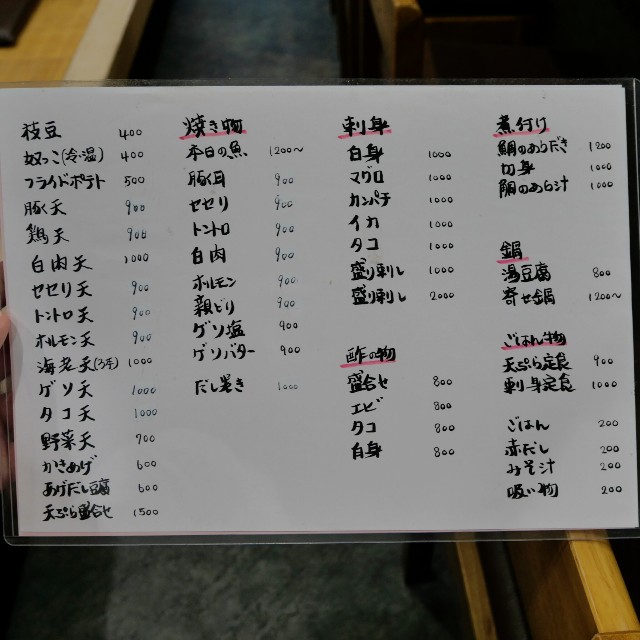 枝豆 400
奴っこ(冷・温) 400
フライドポテト 500
豚天 900
鶏天 900
白肉天 1000
セセリ天 900
トントロ天 900
ホルモン天 900
海老天(3本) 1000
ゲソ天 1000
タコ天 1000
野菜天 700
かきあげ 600
あげだし豆腐 600
天ぷら盛合せ 1500
焼き物
本日の魚 1200〜
豚耳 900
セセリ 900
トントロ 900
白肉 900
ホルモン 900
親どり 900
ゲソ塩 900
ゲソバター 900
だし巻き 1000
刺身
白身 1000
マグロ 1000
カンパチ 1000
イカ 1000
タコ 1000
盛り刺し 1000
盛り刺し 2000
酢の物
盛合せ 800
エビ 800
タコ 800
白身 800
煮付け
鯛のあらだき 1200
切身 1000
鯛のあら汁 1000
鍋
湯豆腐 800
寄せ鍋 1200〜
ごはん物
天ぷら定食 900
刺身定食 1000
ごはん 200
赤だし 200
みそ汁 200
吸い物 200